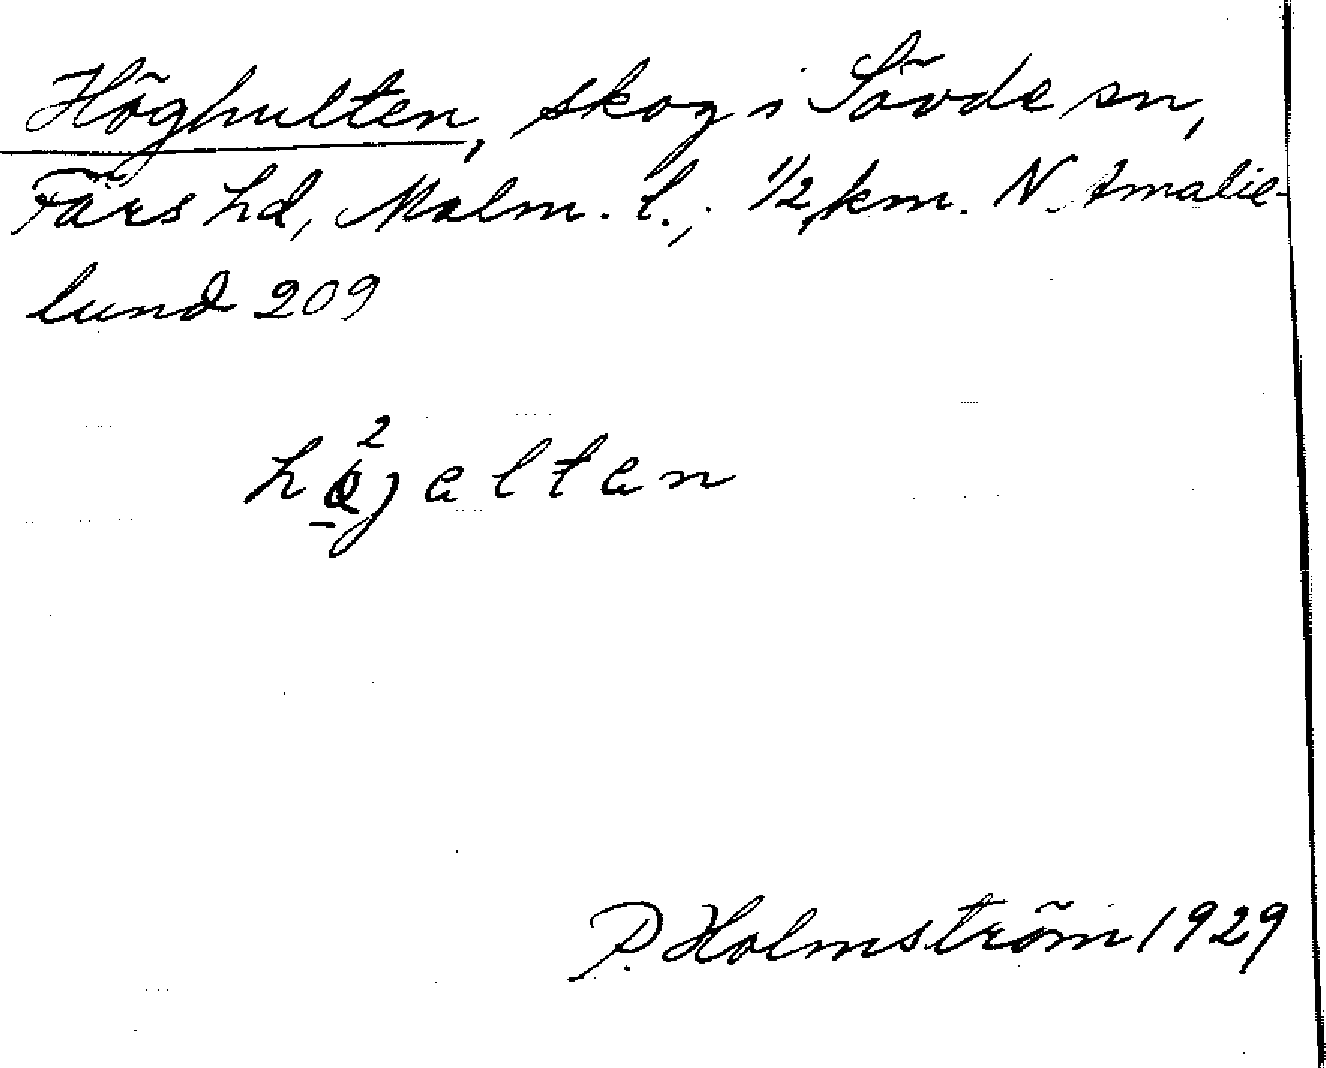 Höghulten, skog i Sövde sn,
Färs hd, Malm. l.; 1/2 km. N. Amalie-
lund 209
2
højelten
P. Holmström 1929